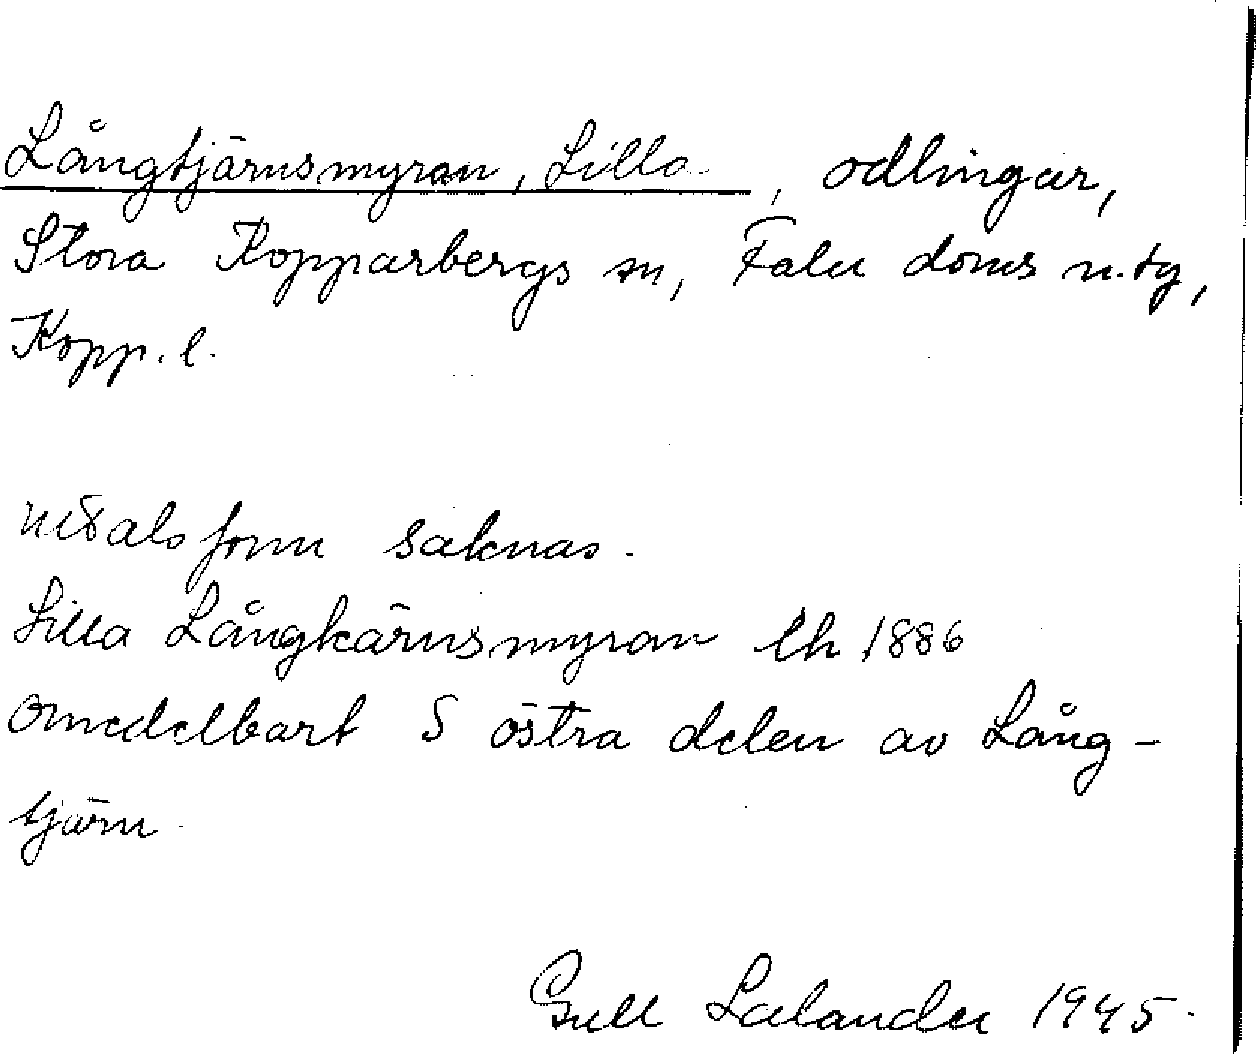 Långtjärnsmyran, Lilla, odlingar,
Stora Kopparbergs sn, Falu doms n. tg,
Kopp. l.
uttalsform saknas.
Lilla Långkärnsmyran lh 1886
omedelbart S östra delen av Lång-
tjärn.
Gull Lalander 1945.